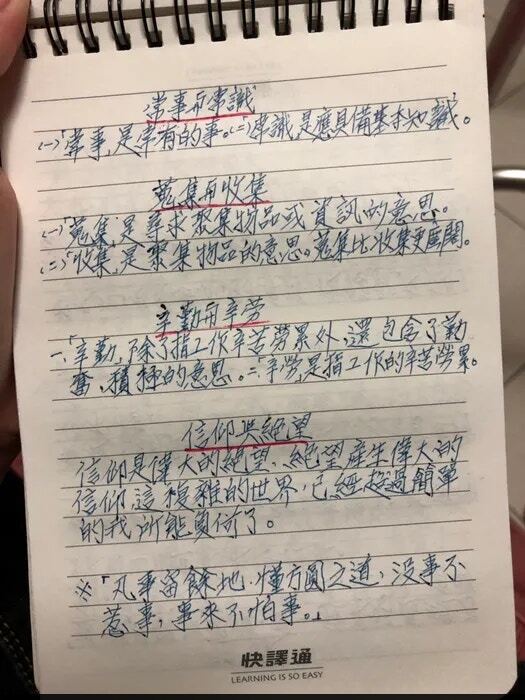 常事与常識
(一)「常事」是常有的事。(二)「常識」是應具備基本知識。
蒐集与收集
(一)「蒐集」是尋求聚集物品或資訊的意思。
(二)「收集」是聚集物品的意思。蒐集比收集更廣闊。
辛勤与辛勞
一、「辛勤」除了指工作辛苦勞累外,還包含了勤
奮、積極的意思。二、「辛勞」是指工作的辛苦勞累。
信仰与絕望
信仰是偉大的絕望、絕望產生偉大的
信仰這複雜的世界,已經超過簡單
的我所能負荷了。
※「凡事留餘地,懂方圓之道,沒事不
惹事,事來不怕事。」
快譯通
LEARNING IS SO EASY